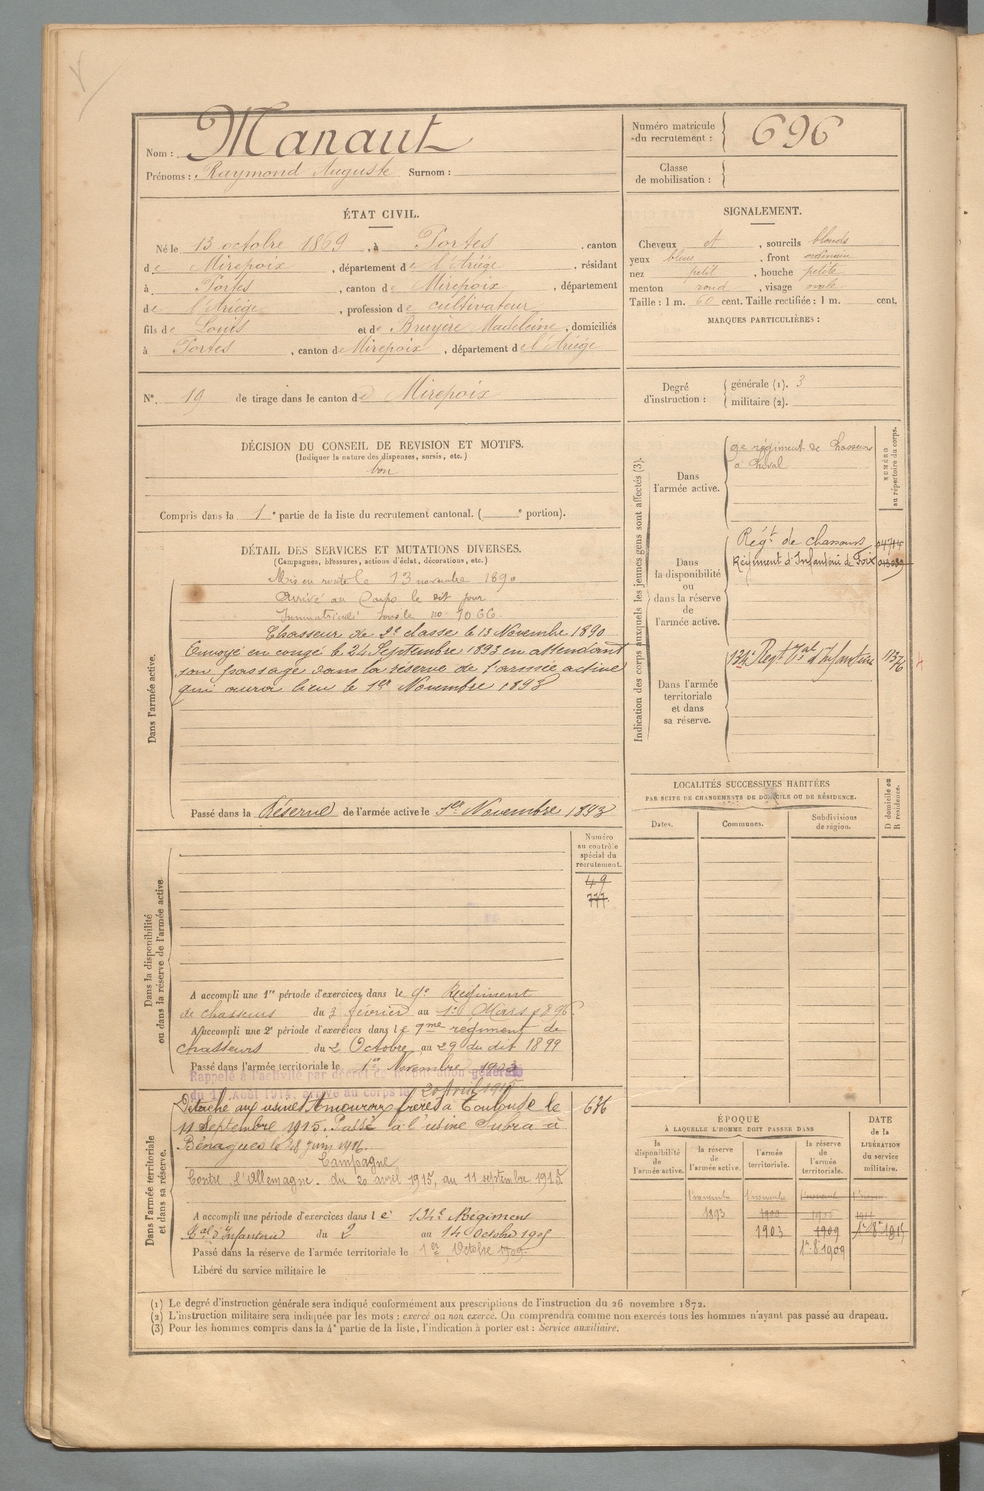 Nom : Manaut
Prénoms : Raymond Auguste Surnom :
Numéro matricule du recrutement : 696
Classe de mobilisation :
ÉTAT CIVIL.
Né le 13 octobre 1869, à Portes, canton
de Mirepoix, département de l'Ariège, résidant
à Portes, canton de Mirepoix, département
de l'Ariège, profession de cultivateur
fils de Louis et de Bruyère Madeleine, domiciliés
à Portes, canton de Mirepoix, département de l'Ariège
N° 19 de tirage dans le canton de Mirepoix
SIGNALEMENT.
Cheveux et, sourcils blonds
yeux bleus, front ordinaire
nez petit, bouche petite
menton rond, visage ovale
Taille : 1 m. 60 cent. Taille rectifiée : 1 m. cent.
MARQUES PARTICULIÈRES :
Degré d'instruction : générale (1). 3
militaire (2).
DÉCISION DU CONSEIL DE REVISION ET MOTIFS.
(Indiquer la nature des dispenses, sursis, etc.)
bon
Compris dans la 1e partie de la liste du recrutement cantonal. ( e portion).
DÉTAIL DES SERVICES ET MUTATIONS DIVERSES.
(Campagnes, blessures, actions d'éclat, décorations, etc.)
Dans l'armée active.
Mis en route le 13 novembre 1890
Arrivé au Corps le dit jour
Immatriculé sous le no 1066
Chasseur de 2e classe le 13 Novembre 1890
Envoyé en congé le 24 Septembre 1893 en attendant
son passage dans la réserve de l'armée active
qui aura lieu le 1er Novembre 1893
Passé dans la Réserve de l'armée active le 1er Novembre 1893
Dans la disponibilité ou dans la réserve de l'armée active
Numéro au contrôle spécial du recrutement.
49
777
A accompli une 1re période d'exercices dans le 9e Régiment
de chasseurs du 3 février au 1er Mars 1896
A accompli une 2e période d'exercices dans le 9me régiment de
chasseurs du 2 Octobre au 29 du dit 1899
Passé dans l'armée territoriale le 1er Novembre 1903
Rappelé à l'activité par décret de mobilisation générale
du 1er Août 1914, arrivé au corps le 20 avril 1915
Dans l'armée territoriale et dans sa réserve.
Détaché aux usines Amouroux frères à Toulouse le
11 Septembre 1915. Passé à l'usine Subra à
Bénagues le 28 juin 1916.
Campagne
Contre l'Allemagne. du 20 avril 1915, au 11 septembre 1915.
636
A accompli une période d'exercices dans le 134e Régiment
Tal d'Infanterie du 2 au 14 Octobre 1905
Passé dans la réserve de l'armée territoriale le 1er Octobre 1909
Libéré du service militaire le
Indication des corps auxquels les jeunes gens sont affectés (3).
NUMÉRO au répertoire du corps.
Dans l'armée active.
9e régiment de Chasseurs
à cheval
Dans la disponibilité ou dans la réserve de l'armée active.
Régt de chasseurs
Régiment d'Infanterie de Foix
Dans l'armée territoriale et dans sa réserve.
134e Regt Tal d'Infanterie
LOCALITÉS SUCCESSIVES HABITÉES
PAR SUITE DE CHANGEMENTS DE DOMICILE OU DE RÉSIDENCE.
Dates. Communes. Subdivisions de région. D domicile ou R résidence.
ÉPOQUE
À LAQUELLE L'HOMME DOIT PASSER DANS
DATE de la LIBÉRATION du service militaire.
la disponibilité de l'armée active. la réserve de l'armée active. l'armée territoriale. la réserve de l'armée territoriale.
1 novembre 1 novembre
1893 1900
1903 1909
1er 8bre 1909
(1) Le degré d'instruction générale sera indiqué conformément aux prescriptions de l'instruction du 26 novembre 1872.
(2) L'instruction militaire sera indiquée par les mots : exercé ou non exercé. On comprendra comme non exercés tous les hommes n'ayant pas passé au drapeau.
(3) Pour les hommes compris dans la 4e partie de la liste, l'indication à porter est : Service auxiliaire.